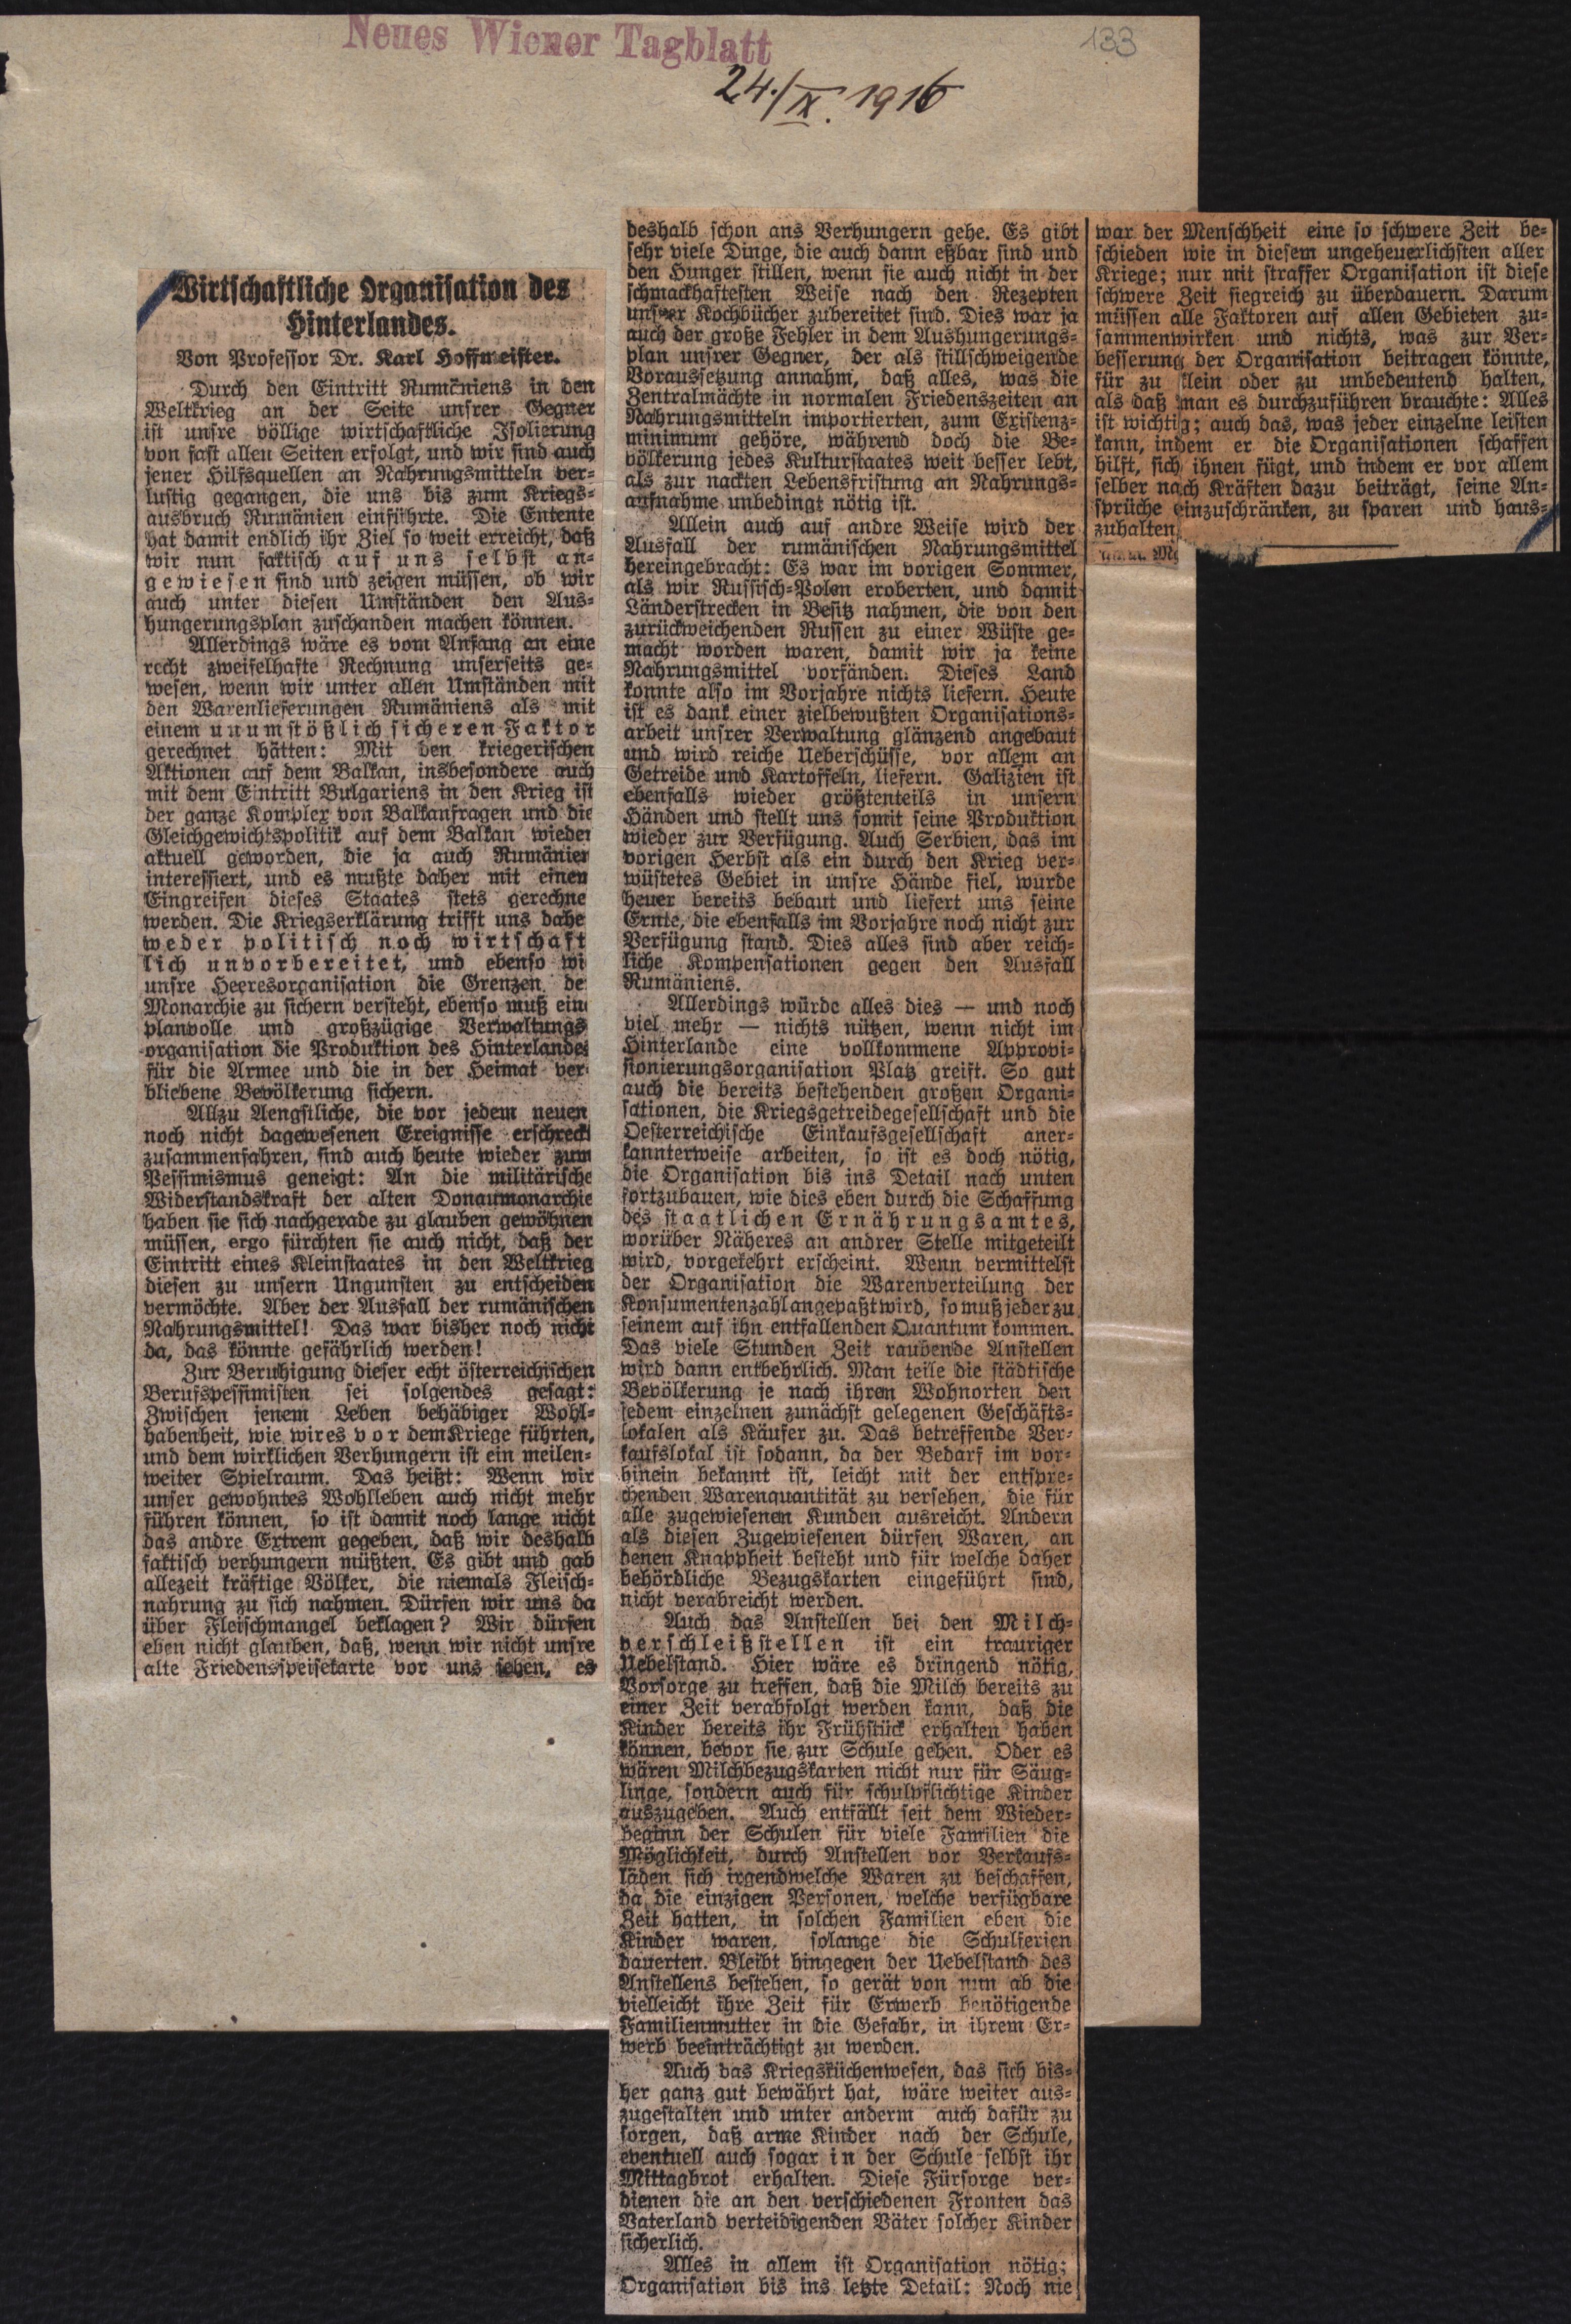 Neues Wiener Tagblatt
133
24./IX. 1916
Wirtschaftliche Organisation des
Hinterlandes.
Von Professor Dr. Karl Hoffmeister.
Durch den Eintritt Rumäniens in den
Weltkrieg an der Seite unsrer Gegner
ist unsre völlige wirtschaftliche Isolierung
von fast allen Seiten erfolgt, und wir sind auch
jener Hilfsquellen an Nahrungsmitteln ver-
lustig gegangen, die uns bis zum Kriegs-
ausbruch Rumänien einführte. Die Entente
hat damit endlich ihr Ziel so weit erreicht, daß
wir nun faktisch auf uns selbst an-
gewiesen sind und zeigen müssen, ob wir
auch unter diesen Umständen den Aus-
hungerungsplan zuschanden machen können.
Allerdings wäre es vom Anfang an eine
recht zweifelhafte Rechnung unserseits ge-
wesen, wenn wir unter allen Umständen mit
den Warenlieferungen Rumäniens als mit
einem unumstößlich sicheren Faktor
gerechnet hätten: Mit den kriegerischen
Aktionen auf dem Balkan, insbesondere auch
mit dem Eintritt Bulgariens in den Krieg ist
der ganze Komplex von Balkanfragen und die
Gleichgewichtspolitik auf dem Balkan wieder
aktuell geworden, die ja auch Rumänien
interessiert, und es mußte daher mit einem
Eingreifen dieses Staates stets gerechne
werden. Die Kriegserklärung trifft uns dahe
weder politisch noch wirtschaft
lich unvorbereitet, und ebenso wi
unsre Heeresorganisation die Grenzen de
Monarchie zu sichern versteht, ebenso muß eine
planvolle und großzügige Verwaltungs
organisation die Produktion des Hinterlandes
für die Armee und die in der Heimat ver-
bliebene Bevölkerung sichern.
Allzu Aengstliche, die vor jedem neuen
noch nicht dagewesenen Ereignisse erschreckt
zusammenfahren, sind auch heute wieder zum
Pessimismus geneigt: An die militärische
Widerstandskraft der alten Donaumonarchie
haben sie sich nachgerade zu glauben gewöhnen
müssen, ergo fürchten sie auch nicht, daß der
Eintritt eines Kleinstaates in den Weltkrieg
diesen zu unsern Ungunsten zu entscheiden
vermöchte. Aber der Ausfall der rumänischen
Nahrungsmittel! Das war bisher noch nicht
da, das könnte gefährlich werden!
Zur Beruhigung dieser echt österreichischen
Berufspessimisten sei folgendes gesagt:
Zwischen jenem Leben behäbiger Wohl-
habenheit, wie wir es vor dem Kriege führten,
und dem wirklichen Verhungern ist ein meilen-
weiter Spielraum. Das heißt: Wenn wir
unser gewohntes Wohlleben auch nicht mehr
führen können, so ist damit noch lange nicht
das andre Extrem gegeben, daß wir deshalb
faktisch verhungern müßten. Es gibt und gab
allezeit kräftige Völker, die niemals Fleisch-
nahrung zu sich nahmen. Dürfen wir uns da
über Fleischmangel beklagen? Wir dürfen
eben nicht glauben, daß, wenn wir nicht unsre
alte Friedensspeisekarte vor uns sehen, es
deshalb schon ans Verhungern gehe. Es gibt
sehr viele Dinge, die auch dann eßbar sind und
den Hunger stillen, wenn sie auch nicht in der
schmackhaftesten Weise nach den Rezepten
unsrer Kochbücher zubereitet sind. Dies war ja
auch der große Fehler in dem Aushungerungs-
plan unsrer Gegner, der als stillschweigende
Voraussetzung annahm, daß alles, was die
Zentralmächte in normalen Friedenszeiten an
Nahrungsmitteln importierten, zum Existenz-
minimum gehöre, während doch die Be-
völkerung jedes Kulturstaates weit besser lebt,
als zur nackten Lebensfristung an Nahrungs-
aufnahme unbedingt nötig ist.
Allein auch auf andre Weise wird der
Ausfall der rumänischen Nahrungsmittel
hereingebracht: Es war im vorigen Sommer,
als wir Russisch-Polen eroberten, und damit
Länderstrecken in Besitz nahmen, die von den
zurückweichenden Russen zu einer Wüste ge-
macht worden waren, damit wir ja keine
Nahrungsmittel vorfänden. Dieses Land
konnte also im Vorjahre nichts liefern. Heute
ist es dank einer zielbewußten Organisations-
arbeit unsrer Verwaltung glänzend angebaut
und wird reiche Ueberschüsse, vor allem an
Getreide und Kartoffeln, liefern. Galizien ist
ebenfalls wieder größtenteils in unsern
Händen und stellt uns somit seine Produktion
wieder zur Verfügung. Auch Serbien, das im
vorigen Herbst als ein durch den Krieg ver-
wüstetes Gebiet in unsre Hände fiel, wurde
heuer bereits bebaut und liefert uns seine
Ernte, die ebenfalls im Vorjahre noch nicht zur
Verfügung stand. Dies alles sind aber reich-
liche Kompensationen gegen den Ausfall
Rumäniens.
Allerdings würde alles dies — und noch
viel mehr — nichts nützen, wenn nicht im
Hinterlande eine vollkommene Approvi-
sionierungsorganisation Platz greift. So gut
auch die bereits bestehenden großen Organi-
sationen, die Kriegsgetreidegesellschaft und die
Oesterreichische Einkaufsgesellschaft aner-
kannterweise arbeiten, so ist es doch nötig,
die Organisation bis ins Detail nach unten
fortzubauen, wie dies eben durch die Schaffung
des staatlichen Ernährungsamtes,
worüber Näheres an andrer Stelle mitgeteilt
wird, vorgekehrt erscheint. Wenn vermittelst
der Organisation die Warenverteilung der
Konsumentenzahl angepaßt wird, so muß jeder zu
seinem auf ihn entfallenden Quantum kommen.
Das viele Stunden Zeit raubende Anstellen
wird dann entbehrlich. Man teile die städtische
Bevölkerung je nach ihren Wohnorten den
jedem einzelnen zunächst gelegenen Geschäfts-
lokalen als Käufer zu. Das betreffende Ver-
kaufslokal ist sodann, da der Bedarf im vor-
hinein bekannt ist, leicht mit der entspre-
chenden Warenquantität zu versehen, die für
alle zugewiesenen Kunden ausreicht. Andern
als diesen Zugewiesenen dürfen Waren, an
denen Knappheit besteht und für welche daher
behördliche Bezugskarten eingeführt sind,
nicht verabreicht werden.
Auch das Anstellen bei den Milch-
verschleißstellen ist ein trauriger
Uebelstand. Hier wäre es dringend nötig,
Vorsorge zu treffen, daß die Milch bereits zu
einer Zeit verabfolgt werden kann, daß die
Kinder bereits ihr Frühstück erhalten haben
können, bevor sie zur Schule gehen. Oder es
wären Milchbezugskarten nicht nur für Säug-
linge, sondern auch für schulpflichtige Kinder
auszugeben. Auch entfällt seit dem Wieder-
beginn der Schulen für viele Familien die
Möglichkeit, durch Anstellen vor Verkaufs-
läden sich irgendwelche Waren zu beschaffen,
da die einzigen Personen, welche verfügbare
Zeit hatten, in solchen Familien eben die
Kinder waren, solange die Schulferien
dauerten. Bleibt hingegen der Uebelstand des
Anstellens bestehen, so gerät von nun ab die
vielleicht ihre Zeit für Erwerb benötigende
Familienmutter in die Gefahr, in ihrem Er-
werb beeinträchtigt zu werden.
Auch das Kriegsküchenwesen, das sich bis-
her ganz gut bewährt hat, wäre weiter aus-
zugestalten und unter anderm auch dafür zu
sorgen, daß arme Kinder nach der Schule,
eventuell auch sogar in der Schule selbst ihr
Mittagbrot erhalten. Diese Fürsorge ver-
dienen die an den verschiedenen Fronten das
Vaterland verteidigenden Väter solcher Kinder
sicherlich.
Alles in allem ist Organisation nötig;
Organisation bis ins letzte Detail: Noch nie
war der Menschheit eine so schwere Zeit be-
schieden wie in diesem ungeheuerlichsten aller
Kriege; nur mit straffer Organisation ist diese
schwere Zeit siegreich zu überdauern. Darum
müssen alle Faktoren auf allen Gebieten zu-
sammenwirken und nichts, was zur Ver-
besserung der Organisation beitragen könnte,
für zu klein oder zu unbedeutend halten,
als daß man es durchzuführen brauchte: Alles
ist wichtig; auch das, was jeder einzelne leisten
kann, indem er die Organisationen schaffen
hilft, sich ihnen fügt, und indem er vor allem
selber nach Kräften dazu beiträgt, seine An-
sprüche einzuschränken, zu sparen und haus-
zuhalten